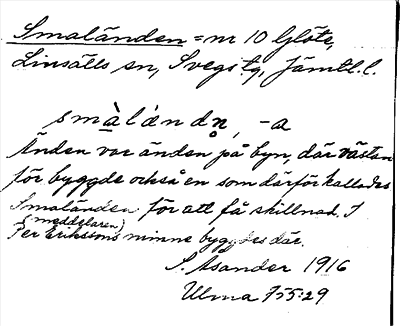 Smaländen = nr 10 Glöte,
Linsälls sn, Svegs tg, Jämtl. l.
smàlǽndn̥, -a
Änden var änden på byn, där västan
för byggde också en som därför kallades
Smaländen för att få skillnad. I
(meddelaren)
Per Erikssons minne byggdes där.
S. Asander 1916
Ulma 755:29